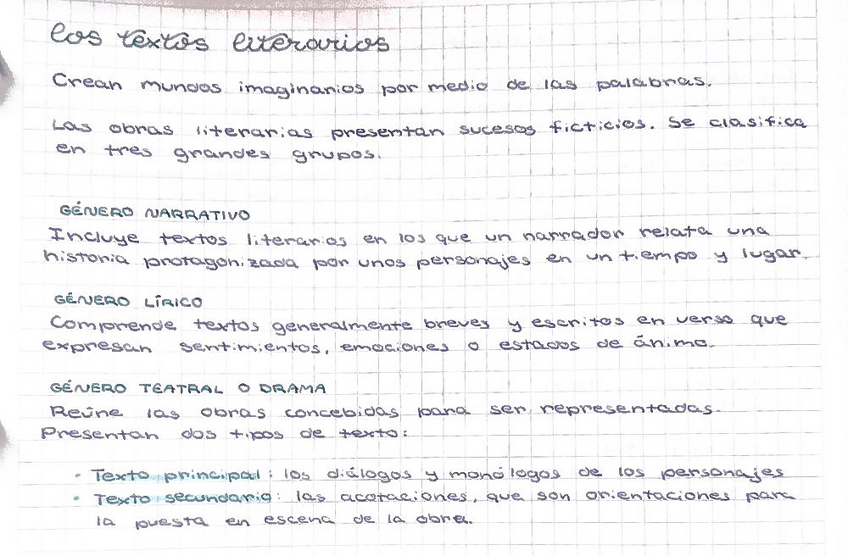 Los textos literarios
Crean mundos imaginarios por medio de las palabras.
Las obras literarias presentan sucesos ficticios. Se clasifica
en tres grandes grupos.
GÉNERO NARRATIVO
Incluye textos literarios en los que un narrador relata una
historia protagonizada por unos personajes en un tiempo y lugar.
GÉNERO LÍRICO
Comprende textos generalmente breves y escritos en verso que
expresan sentimientos, emociones o estados de ánimo.
GÉNERO TEATRAL O DRAMA
Reúne las obras concebidas para ser representadas.
Presentan dos tipos de texto:
• Texto principal: los diálogos y monólogos de los personajes
• Texto secundario: las acotaciones, que son orientaciones para
la puesta en escena de la obra.